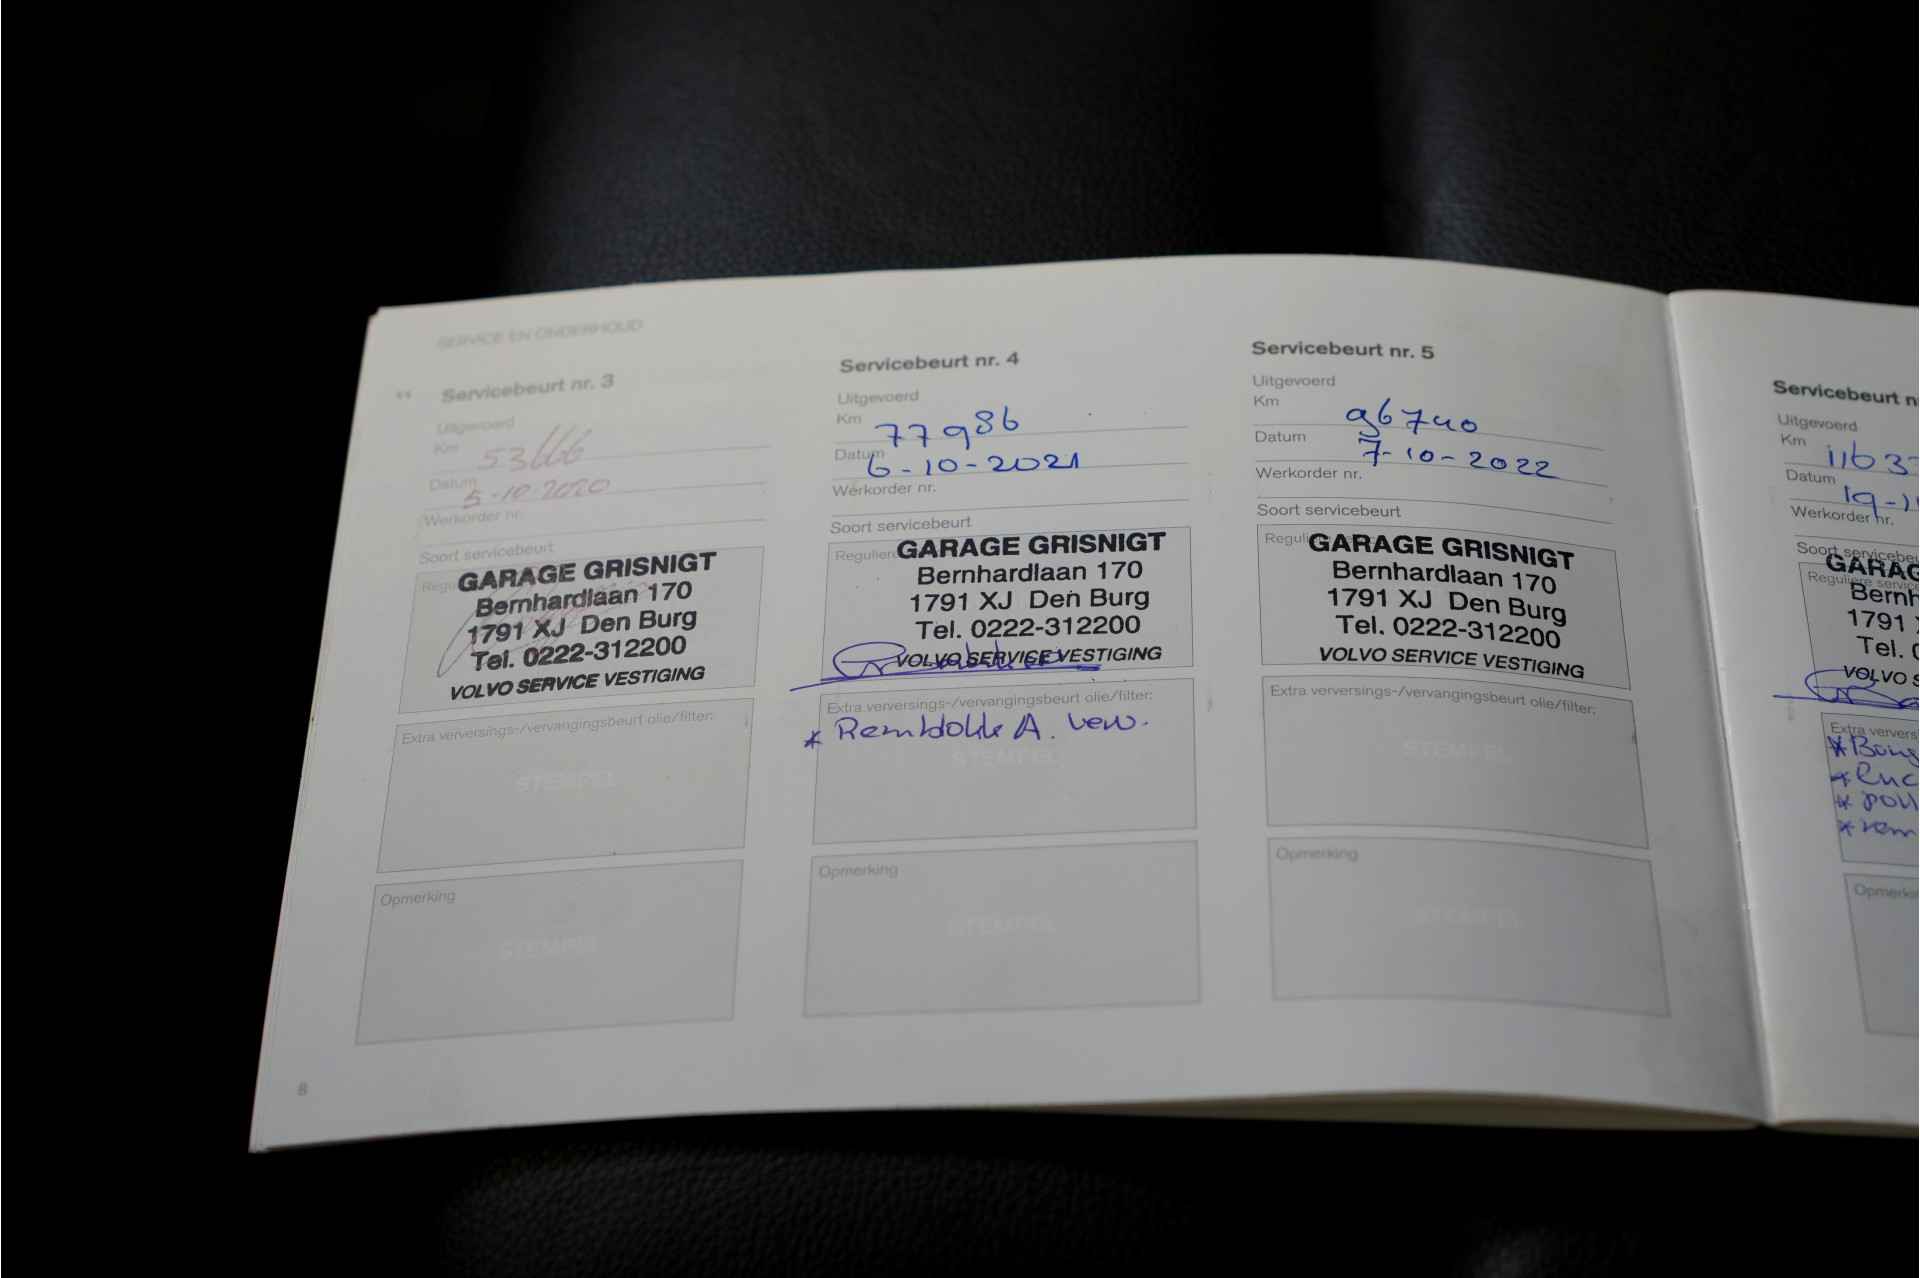 SERVICE EN ONDERHOUD
Servicebeurt nr. 3
Uitgevoerd
Km 53666
Datum 5-10-2020
Werkorder nr.
Soort servicebeurt
GARAGE GRISNIGT
Bernhardlaan 170
1791 XJ Den Burg
Tel. 0222-312200
VOLVO SERVICE VESTIGING
Extra verversings-/vervangingsbeurt olie/filter:
STEMPEL
Opmerking
STEMPEL
8
Servicebeurt nr. 4
Uitgevoerd
Km 77986
Datum 6-10-2021
Werkorder nr.
Soort servicebeurt
Reguliere
GARAGE GRISNIGT
Bernhardlaan 170
1791 XJ Den Burg
Tel. 0222-312200
VOLVO SERVICE VESTIGING
Extra verversings-/vervangingsbeurt olie/filter:
* Remblokke A. verv.
STEMPEL
Opmerking
STEMPEL
Servicebeurt nr. 5
Uitgevoerd
Km 96740
Datum 7-10-2022
Werkorder nr.
Soort servicebeurt
GARAGE GRISNIGT
Bernhardlaan 170
1791 XJ Den Burg
Tel. 0222-312200
VOLVO SERVICE VESTIGING
Extra verversings-/vervangingsbeurt olie/filter:
STEMPEL
Opmerking
STEMPEL
Servicebeurt n
Uitgevoerd
Km 1163
Datum 19-1
Werkorder nr.
Soort servicebeu
Reguliere service
GARAG
Bernh
1791
Tel. 0
VOLVO S
Extra ververs
* 
* 
* poll
* rem
Opmerki